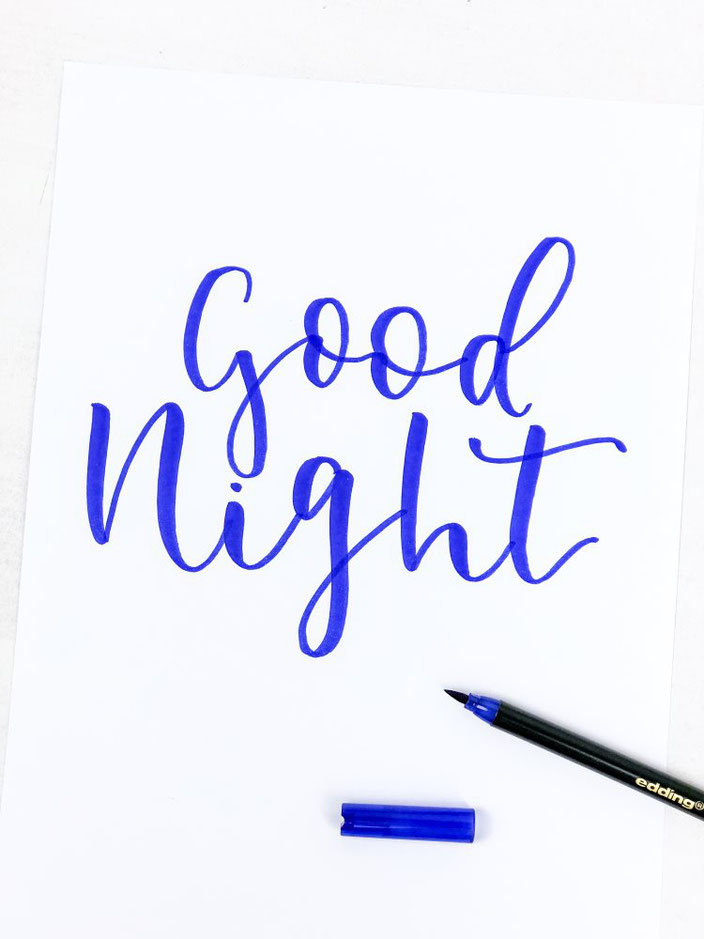 Good
Night
edding®